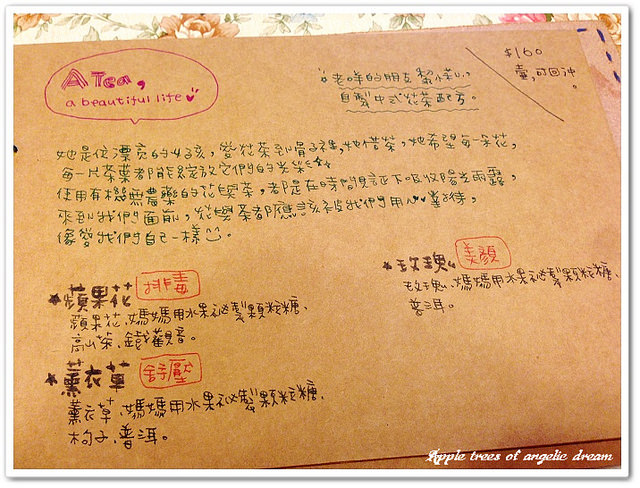 A Tea,
a beautiful life
$160
壺,可回沖。
老咩的朋友黎小小,
自製中式花茶配方。
她是位漂亮的女孩,愛花茶到骨子裡,她惜茶,她希望每一朵花,
每一片茶葉都能綻放它們的光榮,
使用有機無農藥的花與茶,都是在時間見証下吸收陽光雨露,
來到我們面前,花與茶都應該被我們用心善待,
像愛我們自己一樣。
蘋果花 排毒
蘋果花、媽媽用水果祕製顆粒糖、
高山茶、鐵觀音。
薰衣草 舒壓
薰衣草、媽媽用水果祕製顆粒糖、
枸子、普洱。
玫瑰 美顏
玫瑰、媽媽用水果祕製顆粒糖、
普洱。
Apple trees of angelic dream